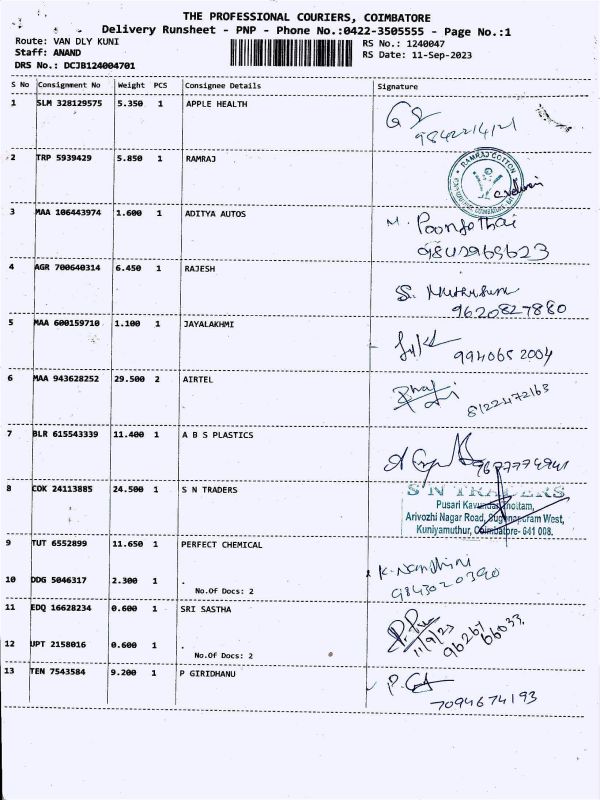 THE PROFESSIONAL COURIERS, COIMBATORE
Delivery Runsheet - PNP - Phone No.:0422-3505555 - Page No.:1
Route: VAN DLY KUNI RS No.: 1240047
Staff: ANAND RS Date: 11-Sep-2023
DRS No.: DCJB124004701
S No Consignment No Weight PCS Consignee Details Signature
1 SLM 328129575 5.350 1 APPLE HEALTH
2 TRP 5939429 5.850 1 RAMRAJ
RAMRAJ COTTON
3 MAA 106443974 1.600 1 ADITYA AUTOS
M.
4 AGR 700640314 6.450 1 RAJESH
S.
9620827880
5 MAA 600159710 1.100 1 JAYALAKHMI
9940652004
6 MAA 943628252 29.500 2 AIRTEL
8122472163
7 BLR 615543339 11.400 1 A B S PLASTICS
8 COK 24113885 24.500 1 S N TRADERS
S N TRADERS
Pusari
Arivozhi Nagar Road, West,
Kuniyamuthur, Coimbatore- 641 008.
9 TUT 6552899 11.650 1 PERFECT CHEMICAL
K. Nandhini
9843020390
10 DDG 5046317 2.300 1 .
No.Of Docs: 2
11 EDQ 16628234 0.600 1 SRI SASTHA
11/9/23
96267 66033
12 UPT 2158016 0.600 1 .
No.Of Docs: 2
13 TEN 7543584 9.200 1 P GIRIDHANU
7094674193